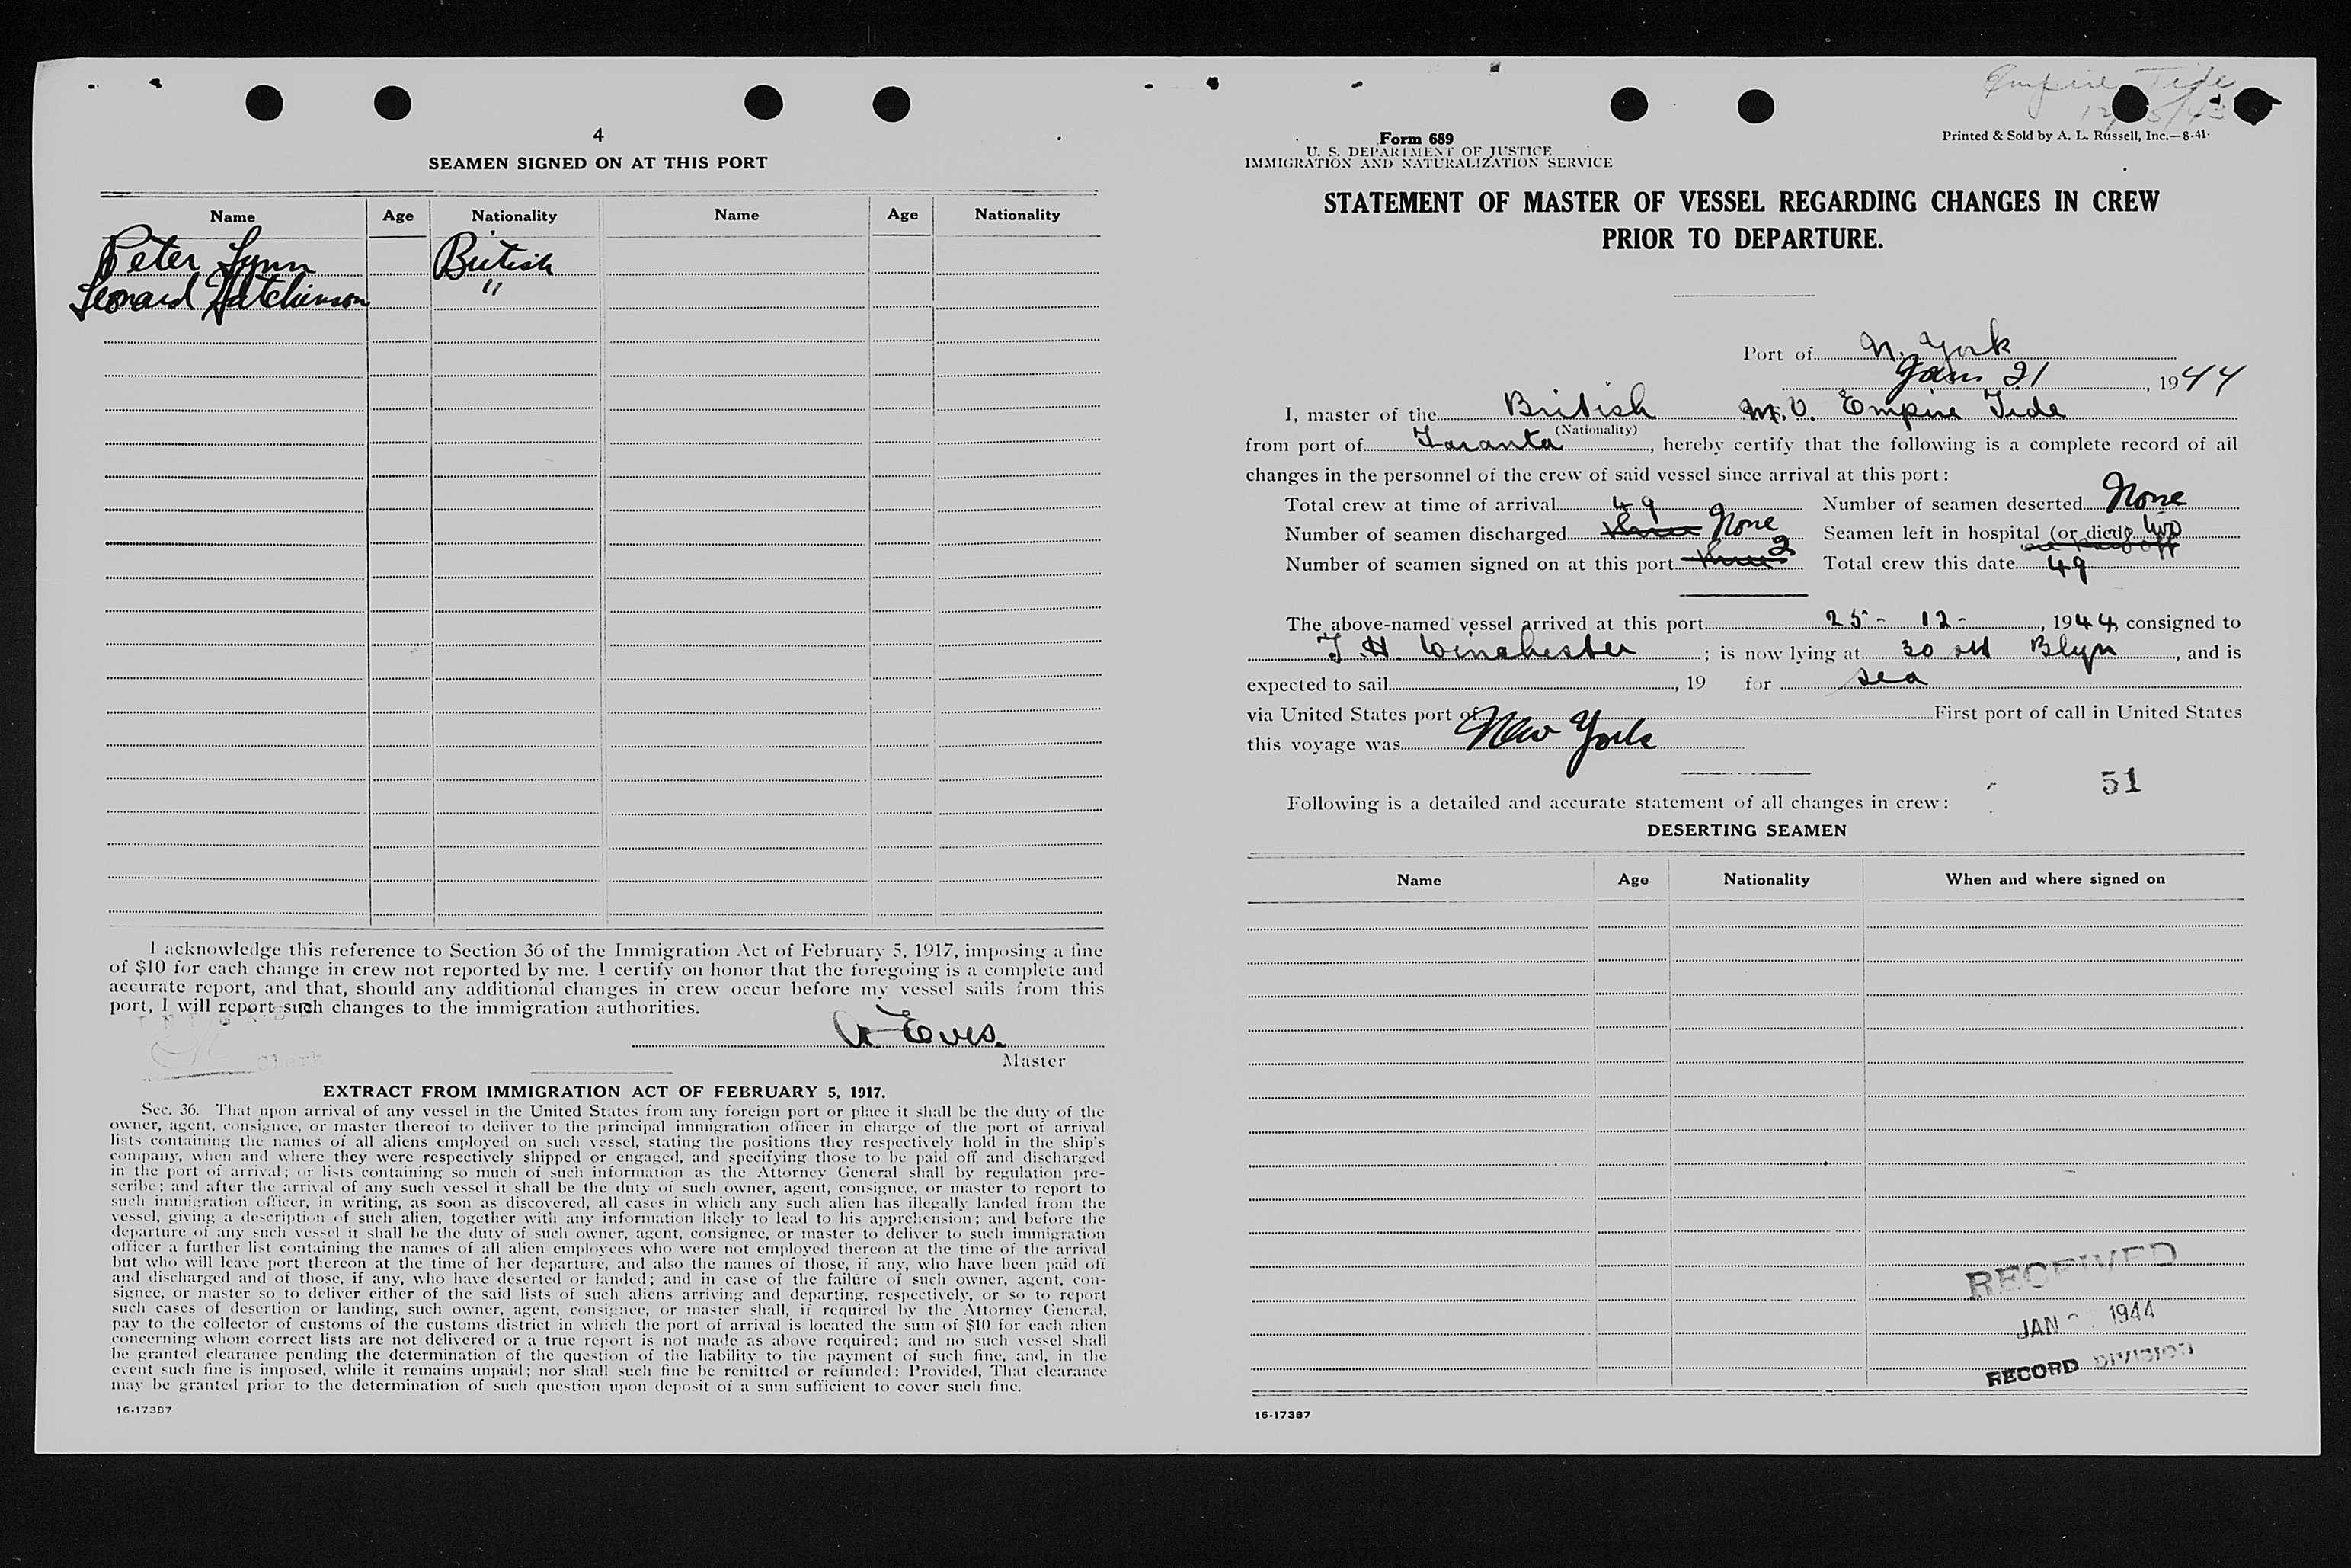 4
SEAMEN SIGNED ON AT THIS PORT
Name Age Nationality Name Age Nationality
Peter Lynn British
Leonard Hutchinson "
I acknowledge this reference to Section 36 of the Immigration Act of February 5, 1917, imposing a fine
of $10 for each change in crew not reported by me. I certify on honor that the foregoing is a complete and
accurate report, and that, should any additional changes in crew occur before my vessel sails from this
port, I will report such changes to the immigration authorities.
Eves.
Master
EXTRACT FROM IMMIGRATION ACT OF FEBRUARY 5, 1917.
Sec. 36. That upon arrival of any vessel in the United States from any foreign port or place it shall be the duty of the
owner, agent, consignee, or master thereof to deliver to the principal immigration officer in charge of the port of arrival
lists containing the names of all aliens employed on such vessel, stating the positions they respectively hold in the ship's
company, when and where they were respectively shipped or engaged, and specifying those to be paid off and discharged
in the port of arrival; or lists containing so much of such information as the Attorney General shall by regulation pre-
scribe; and after the arrival of any such vessel it shall be the duty of such owner, agent, consignee, or master to report to
such immigration officer, in writing, as soon as discovered, all cases in which any such alien has illegally landed from the
vessel, giving a description of such alien, together with any information likely to lead to his apprehension; and before the
departure of any such vessel it shall be the duty of such owner, agent, consignee, or master to deliver to such immigration
officer a further list containing the names of all alien employees who were not employed thereon at the time of the arrival
but who will leave port thereon at the time of her departure, and also the names of those, if any, who have been paid off
and discharged and of those, if any, who have deserted or landed; and in case of the failure of such owner, agent, con-
signee, or master so to deliver either of the said lists of such aliens arriving and departing, respectively, or so to report
such cases of desertion or landing, such owner, agent, consignee, or master shall, if required by the Attorney General,
pay to the collector of customs of the customs district in which the port of arrival is located the sum of $10 for each alien
concerning whom correct lists are not delivered or a true report is not made as above required; and no such vessel shall
be granted clearance pending the determination of the question of the liability to the payment of such fine, and, in the
event such fine is imposed, while it remains unpaid; nor shall such fine be remitted or refunded: Provided, That clearance
may be granted prior to the determination of such question upon deposit of a sum sufficient to cover such fine.
16-17387
Empire Tide
Form 689
U. S. DEPARTMENT OF JUSTICE
IMMIGRATION AND NATURALIZATION SERVICE
Printed & Sold by A. L. Russell, Inc.—8-41
STATEMENT OF MASTER OF VESSEL REGARDING CHANGES IN CREW
PRIOR TO DEPARTURE.
Port of N. York
Jan 21, 1944
I, master of the British M.V. Empire Tide
(Nationality)
from port of Taranta, hereby certify that the following is a complete record of all
changes in the personnel of the crew of said vessel since arrival at this port:
Total crew at time of arrival 49 Number of seamen deserted None
Number of seamen discharged three None Seamen left in hospital (or died) two
Number of seamen signed on at this port three 2 Total crew this date 49
The above-named vessel arrived at this port 25 - 12 -, 1944, consigned to
T. H. Winchester; is now lying at 30 Blyn, and is
expected to sail, 19 for sea
via United States port of First port of call in United States
this voyage was New York
51
Following is a detailed and accurate statement of all changes in crew:
DESERTING SEAMEN
Name Age Nationality When and where signed on
RECEIVED
JAN 1944
RECORD DIVISION
16-17387